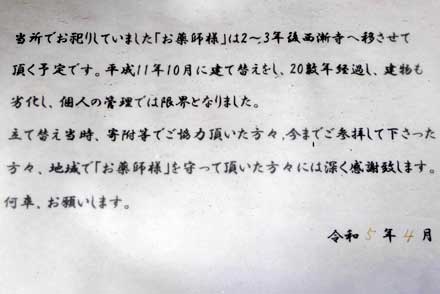 当所でお祀りしていました「お薬師様」は2〜3年後西漸寺へ移させて
頂く予定です。平成11年10月に建て替えをし、20数年経過し、建物も
劣化し、個人の管理では限界となりました。
立て替え当時、寄附等でご協力頂いた方々、今までご参拝して下さった
方々、地域で「お薬師様」を守って頂いた方々には深く感謝致します。
何卒、お願いします。
令和5年4月